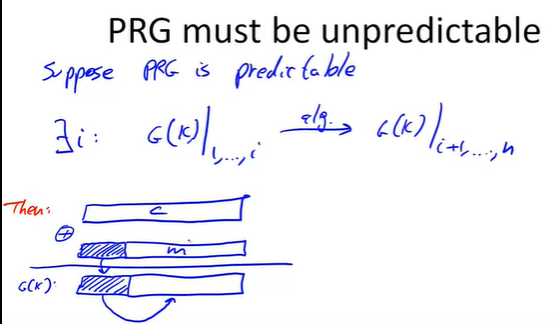 PRG must be unpredictable
Suppose PRG is predictable
∃i: G(K)|1,...,i alg. → G(K)|i+1,...,n
Then: c
⊕ m
G(K):